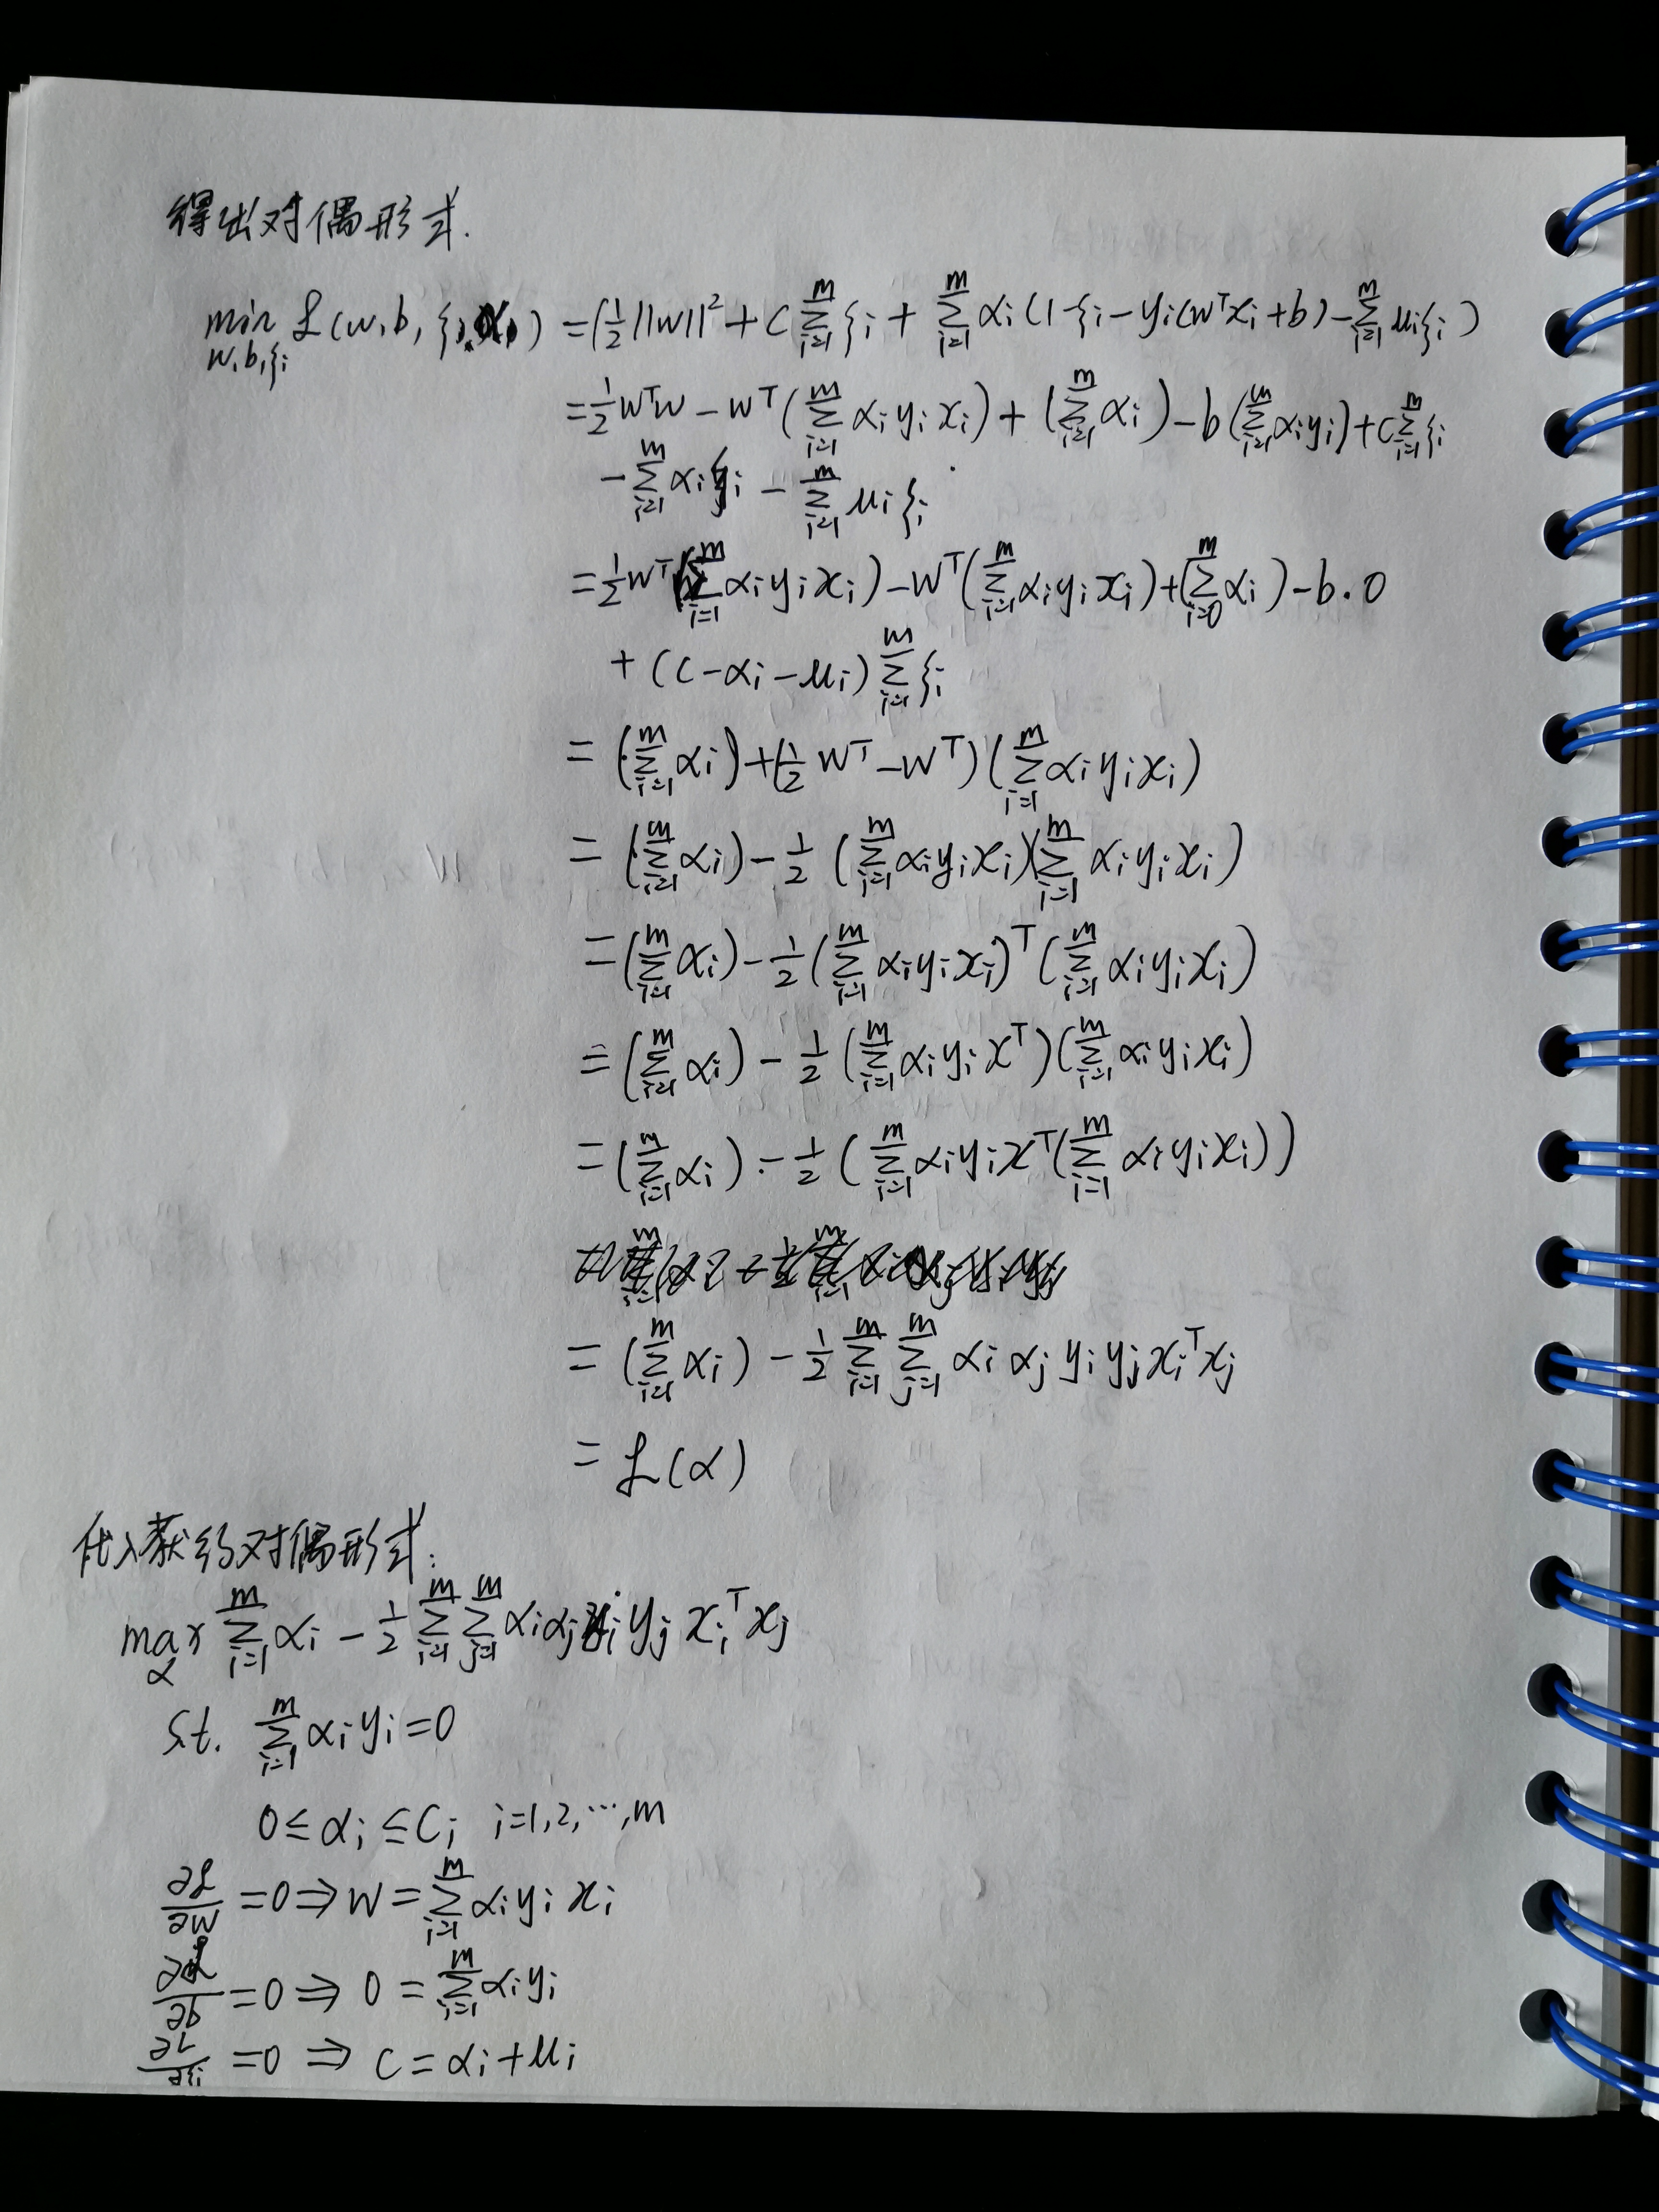 得出对偶形式.
min_{w,b,ξ_i} ℒ(w,b,ξ_i,α_i) = (½||w||² + C∑_{i=1}^m ξ_i + ∑_{i=1}^m α_i(1-ξ_i-y_i(w^Tx_i+b)-∑_{i=1}^m μ_iξ_i)
=½w^Tw - w^T(∑_{i=1}^m α_i y_i x_i) + (∑_{i=1}^m α_i) - b(∑_{i=1}^m α_i y_i) + C∑_{i=1}^m ξ_i
-∑_{i=1}^m α_i ξ_i - ∑_{i=1}^m μ_i ξ_i
=½w^T(∑_{i=1}^m α_i y_i x_i) - w^T(∑_{i=1}^m α_i y_i x_i) + (∑_{i=0}^m α_i) - b·0
+ (C-α_i-μ_i)∑_{i=1}^m ξ_i
= (∑_{i=1}^m α_i) + (½w^T - w^T)(∑_{i=1}^m α_i y_i x_i)
= (∑_{i=1}^m α_i) - ½(∑_{i=1}^m α_i y_i x_i)(∑_{i=1}^m α_i y_i x_i)
= (∑_{i=1}^m α_i) - ½(∑_{i=1}^m α_i y_i x_i)^T(∑_{i=1}^m α_i y_i x_i)
= (∑_{i=1}^m α_i) - ½(∑_{i=1}^m α_i y_i x^T)(∑_{i=1}^m α_i y_i x_i)
= (∑_{i=1}^m α_i) - ½(∑_{i=1}^m α_i y_i x^T(∑_{i=1}^m α_i y_i x_i))
= (∑_{i=1}^m α_i) - ½∑_{i=1}^m ∑_{j=1}^m α_i α_j y_i y_j x_i^T x_j
= ℒ(α)
代入获得对偶形式:
max_α ∑_{i=1}^m α_i - ½∑_{i=1}^m ∑_{j=1}^m α_i α_j y_i y_j x_i^T x_j
s.t. ∑_{i=1}^m α_i y_i = 0
0 ≤ α_i ≤ C_i i=1,2,…,m
∂ℒ/∂w = 0 ⇒ w = ∑_{i=1}^m α_i y_i x_i
∂ℒ/∂b = 0 ⇒ 0 = ∑_{i=1}^m α_i y_i
∂L/∂ξ_i = 0 ⇒ C = α_i + μ_i